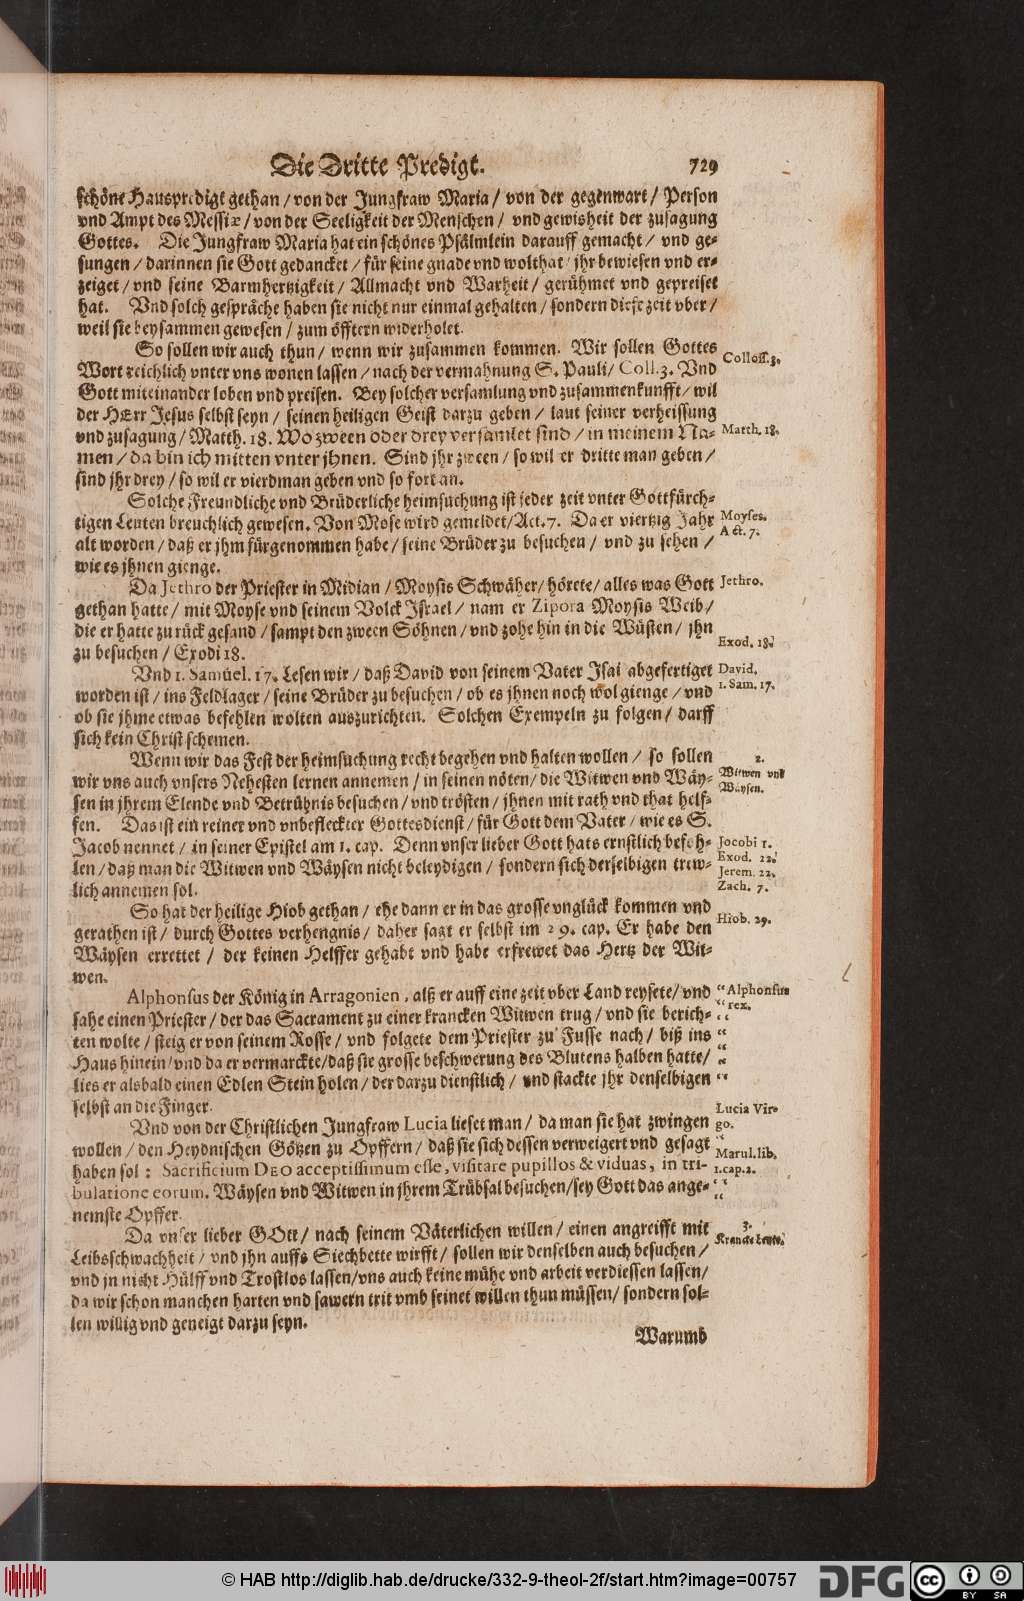 Die Dritte Predigt. 729
schöne Hauspredigt gethan / von der Jungfraw Maria / von der gegenwart / Person
vnd Ampt des Messiæ / von der Seeligkeit der Menschen / vnd gewisheit der zusagung
Gottes. Die Jungfraw Maria hat ein schönes Psälmlein darauff gemacht / vnd ge-
sungen / darinnen sie Gott gedancket / für seine gnade vnd wolthat / jhr bewiesen vnd er-
zeiget / vnd seine Barmhertzigkeit / Allmacht vnd Warheit / gerühmet vnd gepreiset
hat. Vnd solch gespräche haben sie nicht nur einmal gehalten / sondern diese zeit vber /
weil sie beysammen gewesen / zum öfftern widerholet.
So sollen wir auch thun / wenn wir zusammen kommen. Wir sollen Gottes
Wort reichlich vnter vns wonen lassen / nach der vermahnung S. Pauli / Coll. 3. Vnd
Colloss. 3.
Gott miteinander loben vnd preisen. Bey solcher versamlung vnd zusammenkunfft / wil
der HErr Jesus selbst seyn / seinen heiligen Geist darzu geben / laut seiner verheissung
vnd zusagung / Matth. 18. Wo zween oder drey versamlet sind / in meinem Na-
Matth. 18.
men / da bin ich mitten vnter jhnen. Sind jhr zween / so wil er dritte man geben /
sind jhr drey / so wil er vierdman geben vnd so fort an.
Solche Freundliche vnd Brüderliche heimsuchung ist jeder zeit vnter Gottfürch-
tigen Leuten breuchlich gewesen. Von Mose wird gemeldet / Act. 7. Da er viertzig Jahr
Moyses.
Act. 7.
alt worden / daß er jhm fürgenommen habe / seine Brüder zu besuchen / vnd zu sehen /
wie es jhnen gienge.
Da Jethro der Priester in Midian / Moysis Schwäher / hörete / alles was Gott
Jethro.
gethan hatte / mit Moyse vnd seinem Volck Israel / nam er Zipora Moysis Weib /
die er hatte zu rück gesand / sampt den zween Söhnen / vnd zohe hin in die Wüsten / jhn
Exod. 18.
zu besuchen / Exodi 18.
Vnd 1. Samüel. 17. Lesen wir / daß David von seinem Vater Isai abgefertiget
David.
1. Sam. 17.
worden ist / ins Feldlager / seine Brüder zu besuchen / ob es jhnen noch wol gienge / vnd
ob sie jhme etwas befehlen wolten auszurichten. Solchen Exempeln zu folgen / darff
sich kein Christ schemen.
Wenn wir das Fest der heimsuchung recht begehen vnd halten wollen / so sollen
2.
Witwen vnd
Waysen.
wir vns auch vnsers Nehesten lernen annemen / in seinen nöten / die Witwen vnd Wäy-
sen in jhrem Elende vnd Betrübnis besuchen / vnd trösten / jhnen mit rath vnd that helf-
fen. Das ist ein reiner vnd vnbefleckter Gottesdienst / für Gott dem Vater / wie es S.
Jacob nennet / in seiner Epistel am 1. cap. Denn vnser lieber Gott hats ernstlich befoh-
Jocobi 1.
Exod. 22.
Jerem. 22.
Zach. 7.
len / daß man die Witwen vnd Wäysen nicht beleydigen / sondern sich derselbigen trew-
lich annemen sol.
So hat der heilige Hiob gethan / ehe dann er in das grosse vnglück kommen vnd
Hiob. 29.
gerathen ist / durch Gottes verhengnis / daher sagt er selbst im 29. cap. Er habe den
Wäysen errettet / der keinen Helffer gehabt vnd habe erfrewet das Hertz der Wit-
wen.
Alphonsus der König in Arragonien, alß er auff eine zeit vber Land reysete / vnd
Alphonsus
rex.
sahe einen Priester / der das Sacrament zu einer krancken Witwen trug / vnd sie berich-
ten wolte / steig er von seinem Rosse / vnd folgete dem Priester zu Fusse nach / biß ins
Haus hinein / vnd da er vermarckte / daß sie grosse beschwerung des Blutens halben hatte /
lies er alsbald einen Edlen Stein holen / der darzu dienstlich / vnd stackte jhr denselbigen
selbst an die Finger.
Vnd von der Christlichen Jungfraw Lucia lieset man / da man sie hat zwingen
Lucia Vir-
go.
wollen / den Heydnischen Götzen zu Opffern / daß sie sich dessen verweigert vnd gesagt
Marul. lib.
1. cap. 2.
haben sol: Sacrificium DEO acceptissimum esse, visitare pupillos & viduas, in tri-
bulatione eorum. Wäysen vnd Witwen in jhrem Trübsal besuchen / sey Gott das ange-
nemste Opffer.
Da vnser lieber GOtt / nach seinem Väterlichen willen / einen angreifft mit
3.
Krancke Leute.
Leibsschwachheit / vnd jhn auffs Siechbette wirfft / sollen wir denselben auch besuchen /
vnd jn nicht Hülff vnd Trostlos lassen / vns auch keine mühe vnd arbeit verdiessen lassen /
da wir schon manchen harten vnd sawern trit vmb seinet willen thun müssen / sondern sol-
len willig vnd geneigt darzu seyn.
Warumb
© HAB http://diglib.hab.de/drucke/332-9-theol-2f/start.htm?image=00757
DFG
cc BY SA